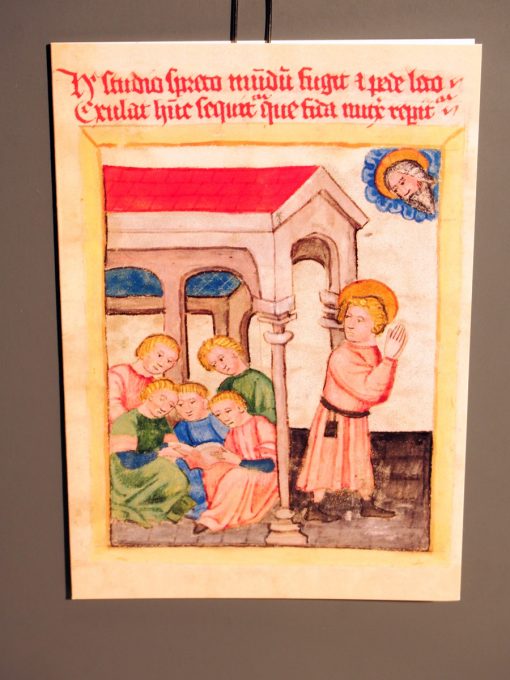 Hᶜ studio spreto mūdū fugit ⁊ pede leto
Exulat hūc sequit᷑ que fida nutx̄ repit᷑